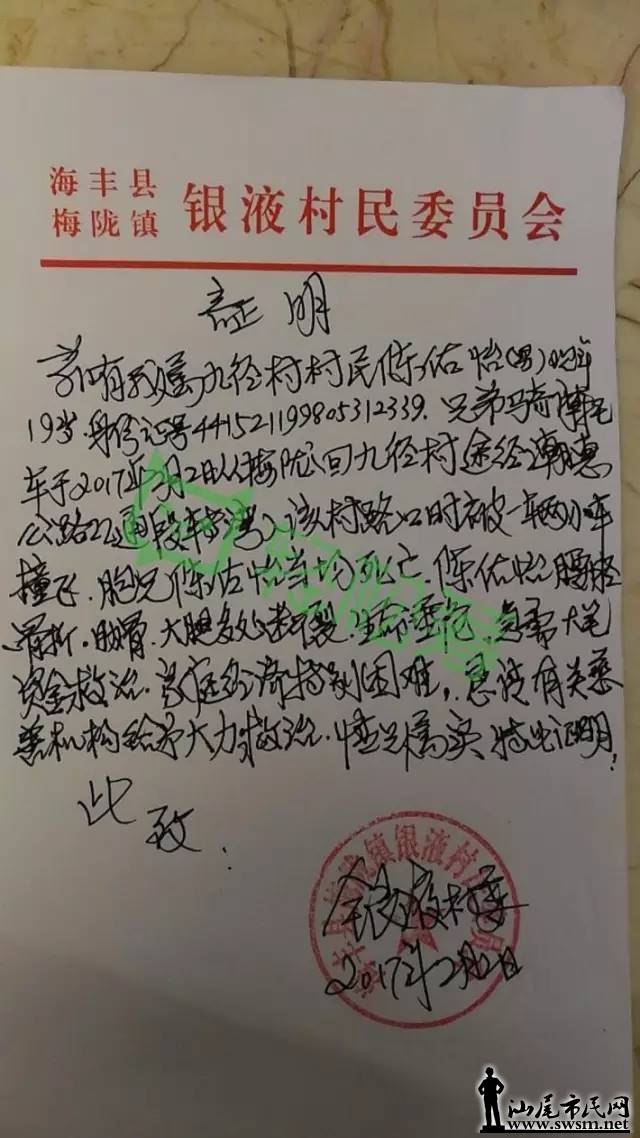 海丰县
梅陇镇 银液村民委员会
证明
兹有我属下九径村村民陈佑怡(男)现年
19岁.身份证号441521199805312339.兄弟骑摩托
车于2017年2月2日从梅陇回九径村途经潮惠
公路 通段 湾入该村路口时被一辆小车
撞飞.胞兄陈佑怡当场死亡.陈佑怡腰
骨折.脚骨.大腿多处断裂.生命垂危.急需大笔
资金救治.家庭经济特别困难,恳请有关慈
善机构给予大力救治.情况属实特此证明;
此致
银液村委
2017年2月2日
海丰县梅陇镇银液村民委员会
汕尾市民网
www.swsm.net